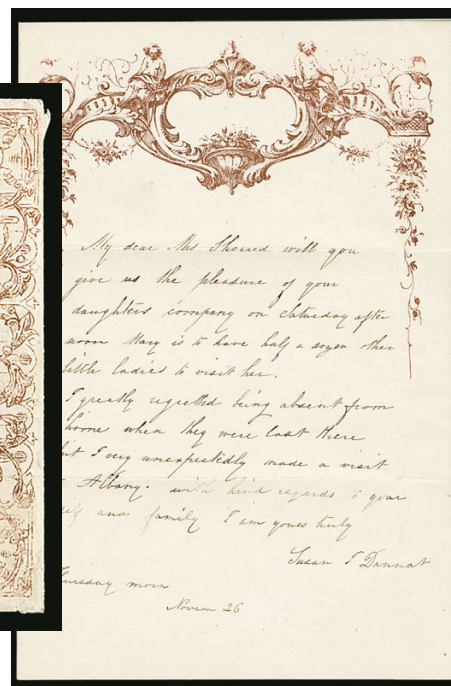 My dear Mrs Sherred will you
give us the pleasure of your
daughters company on Saturday after
noon Mary is to have half a dozen other
little ladies to visit her.
I greatly regretted being absent from
home when they were last there
but I very unexpectedly made a visit
Albany. with kind regards to your
self and family I am yours truly
Susan T Dannat
Thursday morn
Novem 26